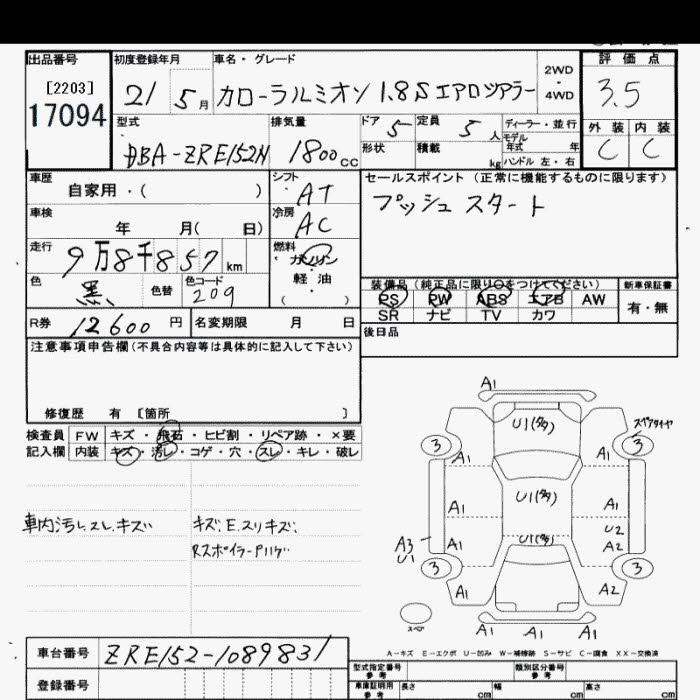 出品番号 初度登録年月 車名・グレード 2WD・4WD 評価点
[2203] 17094 21 5月 カローラルミオン 1.8S エアロツアラー 3.5
型式 排気量 ドア 5 定員 5人 ディーラー・並行 外装 内装
DBA-ZRE152N 1800cc 形状 積載 kg モデル年式 年 ハンドル 左・右 C C
車歴 自家用・( ) シフト AT セールスポイント (正常に機能するものに限ります)
車検 年 月( 日) 冷房 AC プッシュスタート
走行 9万8千857km 燃料 ガソリン
色 黒 色替 色コード 209 軽油 ( )
装備品 (純正品に限り○をつけてください) 新車保証書
PS PW ABS エアB AW 有・無
SR ナビ TV カワ
R券 12600円 名変期限 月 日 後日品
注意事項申告欄 (不具合内容等は具体的に記入して下さい)
修復歴 有 [箇所 ]
検査員 FW キズ・飛石・ヒビ割・リペア跡・×要
記入欄 内装 キズ・汚レ・コゲ・穴・スレ・キレ・破レ
車内汚レ.スレ.キズ キズ.E.スリキズ.
RスポイラーPハゲ
A1
U1
3 スペアタイヤ 3
A1 A1
U1
A1 A1
U2
A3 A1 U1 A2
U1
3 3
A1 A2
スペア A1 A1 A1
A-キズ E-エクボ U-凹み W-補修跡 S-サビ C-腐食 XX-交換済
車台番号 ZRE152-1089831
登録番号
型式指定番号 参考 類別区分番号 参考
車庫証明用 参考 長さ cm 幅 cm 高さ cm